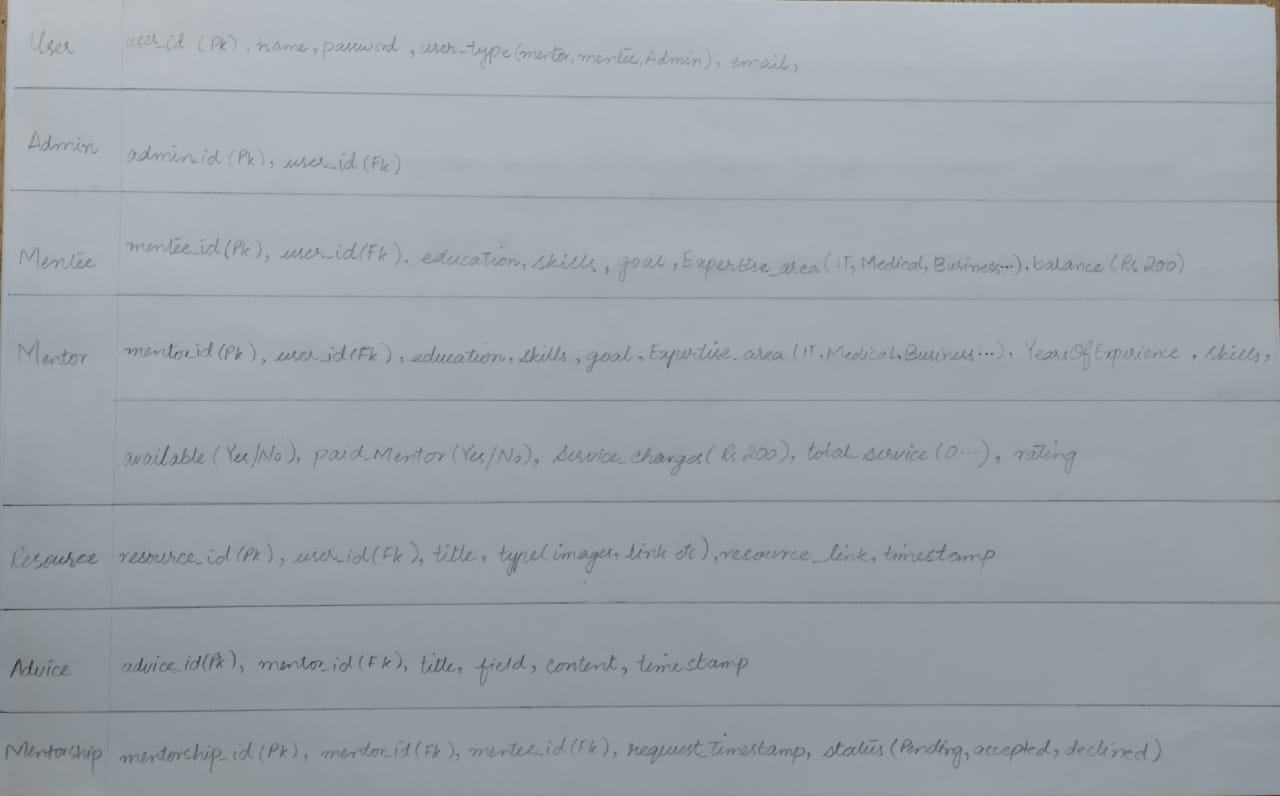 User user_id (Pk), name, password, user_type(mentor, mentee, Admin), email,
Admin admin_id (Pk), user_id (Fk)
Mentee mentee_id (Pk), user_id (Fk), education, skills, goal, Expertise_area (IT, Medical, Business...), balance (Rs 200)
Mentor mentor_id (Pk), user_id (Fk), education, skills, goal, Expertise_area (IT, Medical, Business...), YearsOfExperience, skills,
available (Yes/No), paid_Mentor (Yes/No), Service_charges (Rs 200), total service (0...), rating
Resource resource_id (Pk), user_id (Fk), title, type(images, link etc), resource_link, timestamp
Advice advice_id (Pk), mentor_id (Fk), title, field, content, timestamp
Mentorship mentorship_id (Pk), mentor_id (Fk), mentee_id (Fk), request_timestamp, status (Pending, accepted, declined)